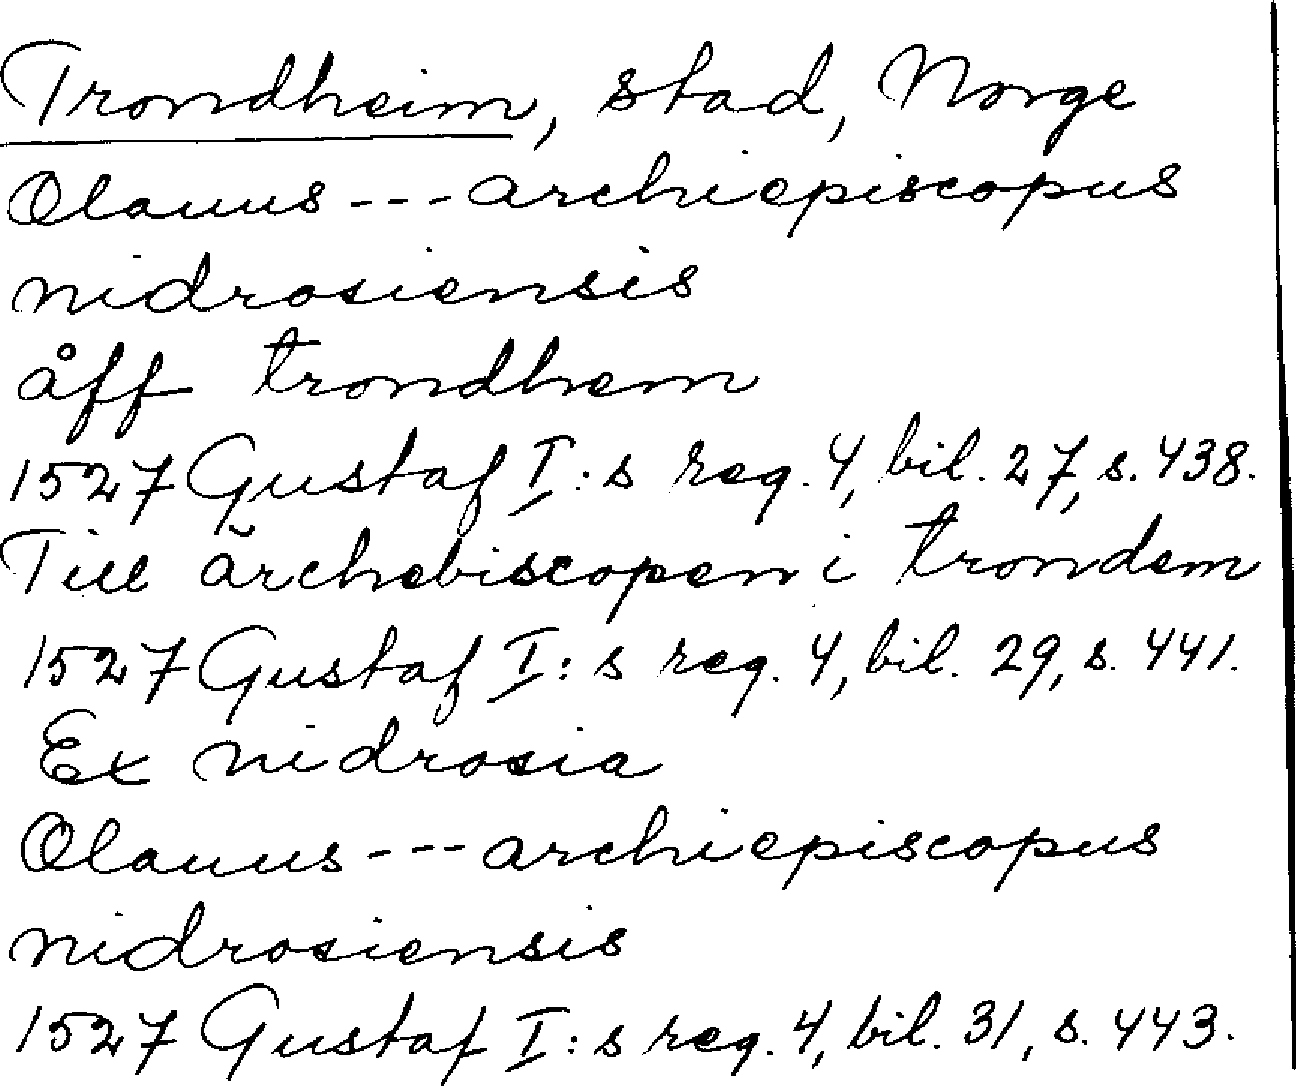 Trondheim, stad, Norge
Olauus --- archiepiscopus
nidrosiensis
åff trondhem
1527 Gustaf I:s reg. 4, bil. 27, s. 438.
Till ärchebiscopen i trondem
1527 Gustaf I:s reg. 4, bil. 29, s. 441.
Ex nidrosia
Olauus --- archiepiscopus
nidrosiensis
1527 Gustaf I:s reg. 4, bil. 31, s. 443.